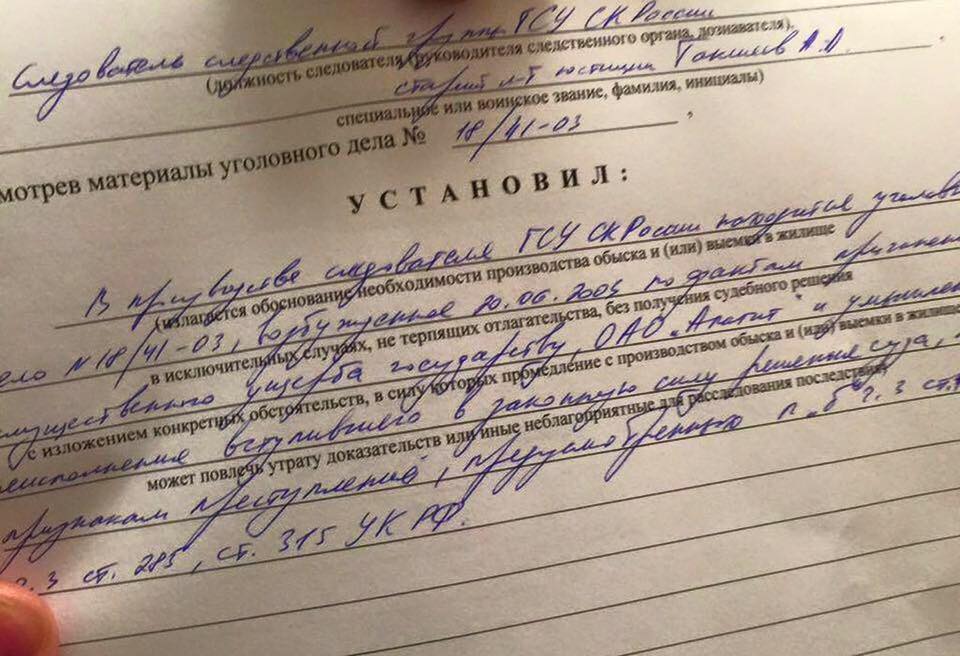 Следователь следственной группы ГСУ СК России
(должность следователя (руководителя следственного органа, дознавателя),
старший л-т юстиции А.А.
специальное или воинское звание, фамилия, инициалы)
мотрев материалы уголовного дела № 18/41-03 ,
УСТАНОВИЛ:
В производстве следователя ГСУ СК России находится уголовн
(излагается обоснование необходимости производства обыска и (или) выемки в жилище
дело №18/41-03, возбужденное 20.06.2003 по фактам причинен
в исключительных случаях, не терпящих отлагательства, без получения судебного решения
имущественного ущерба государству, ОАО „Апатит" и умышлен
с изложением конкретных обстоятельств, в силу которых промедление с производством обыска и (или) выемки в жилище
неисполнение вступившего в законную силу решение суда,
может повлечь утрату доказательств или иные неблагоприятные для расследования последствия)
признакам преступлений, предусмотренных п. „б" ч. 3 ст.
ч. 3 ст. 285, ст. 315 УК РФ.